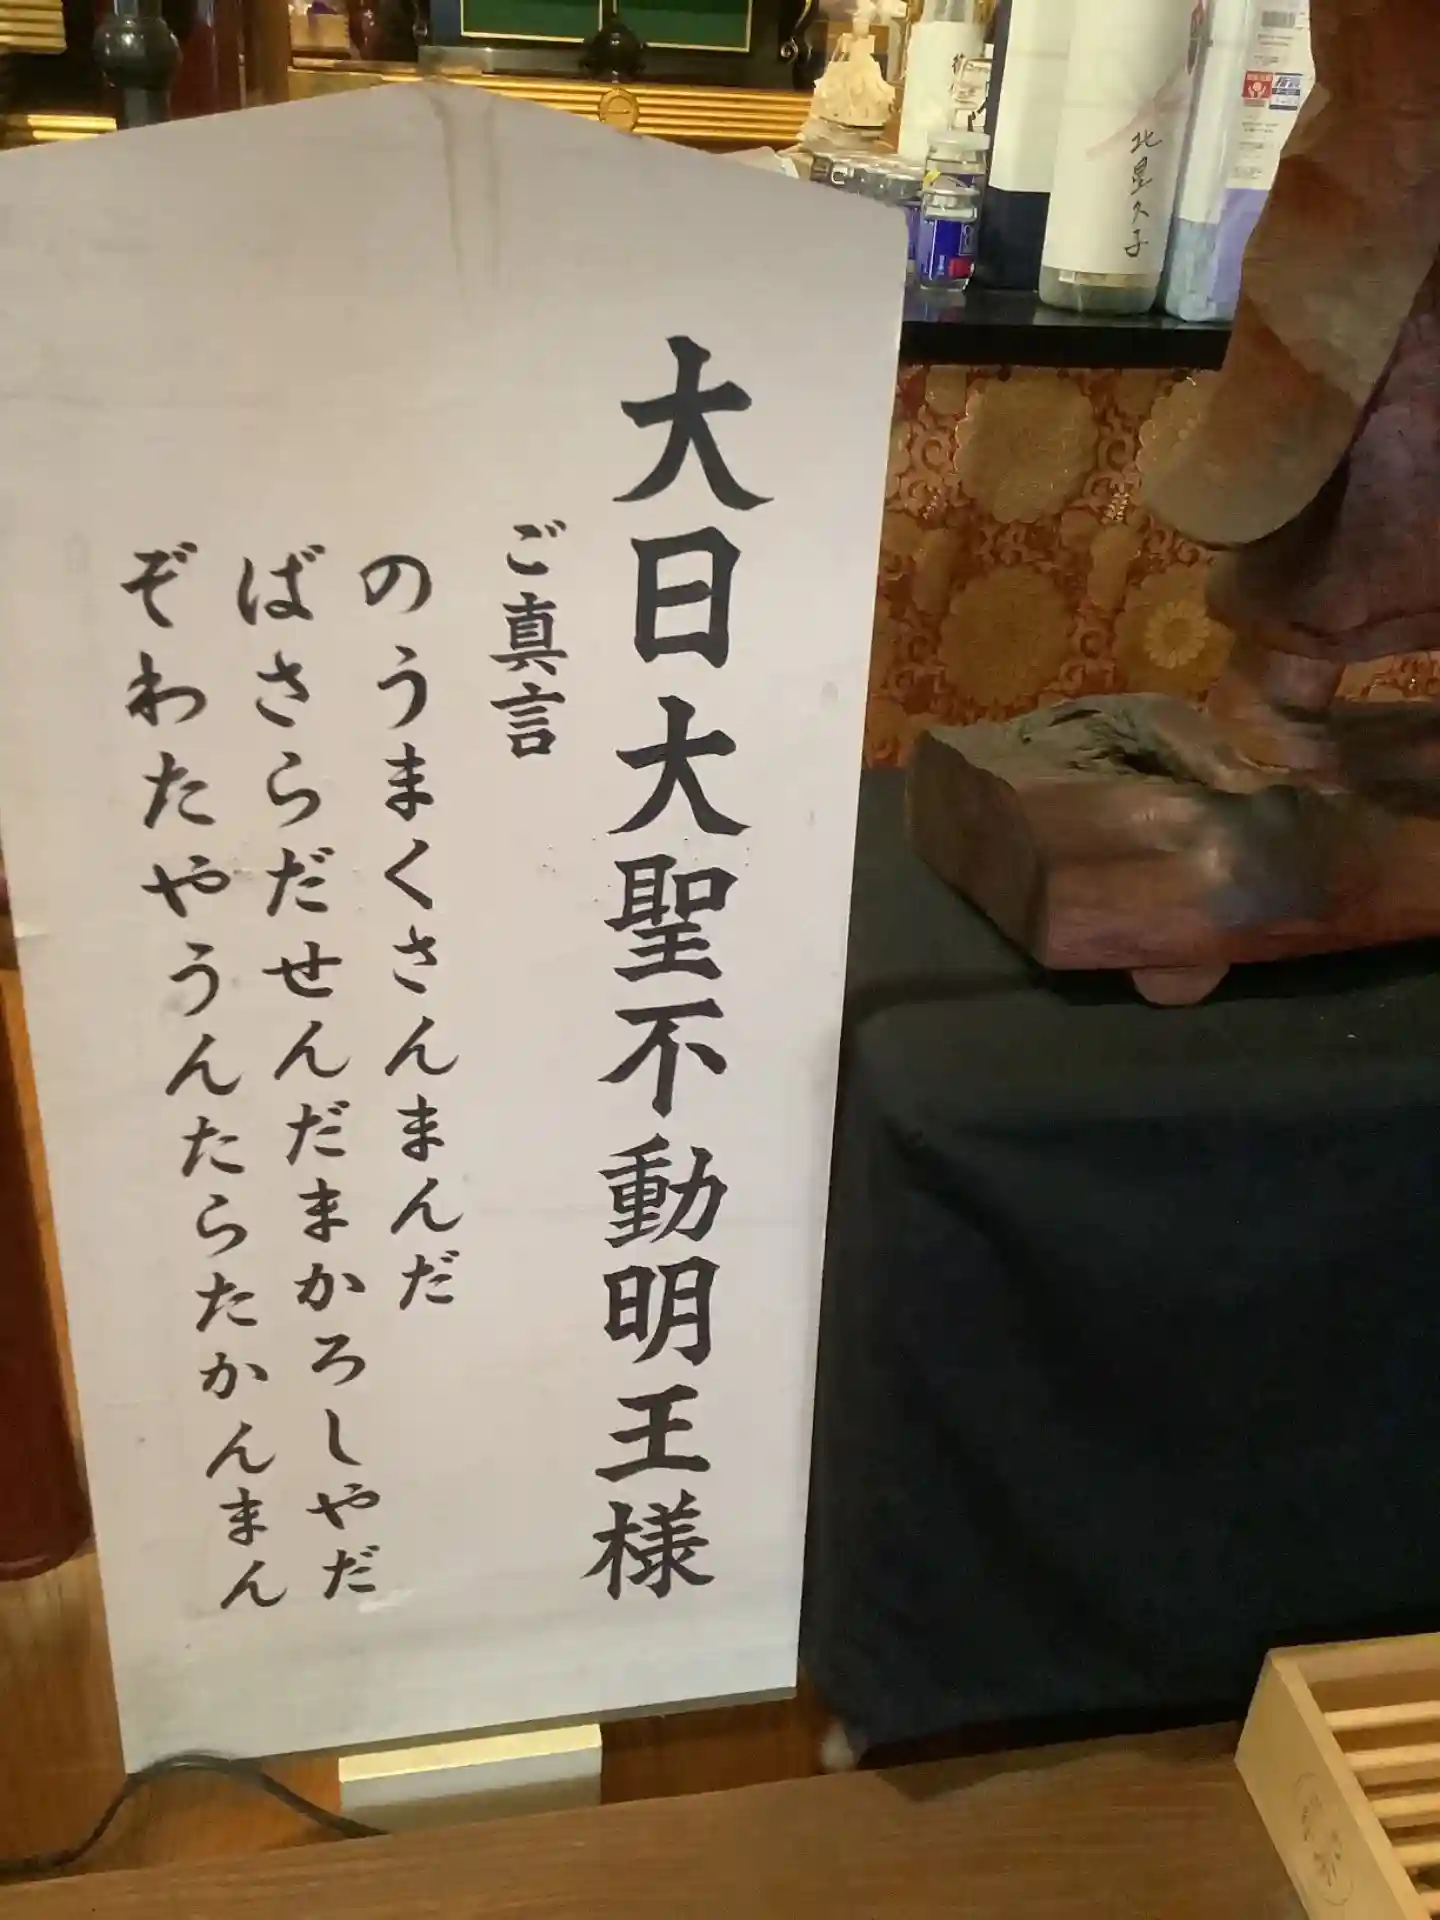 大日大聖不動明王様
ご真言
のうまくさんまんだ
ばさらだせんだまかろしやだ
ぞわたやうんたらたかんまん
北星久子